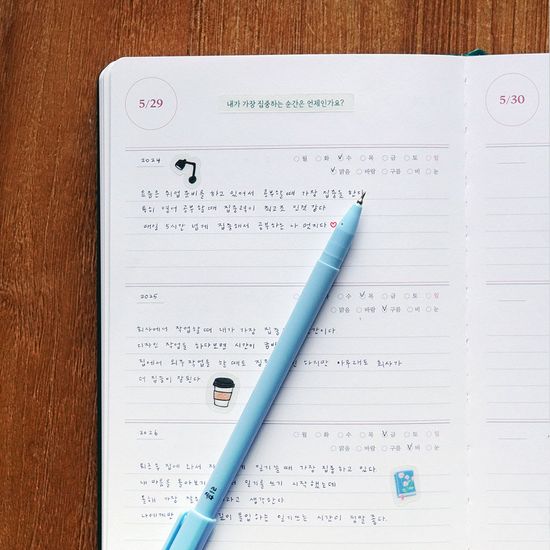 5/29
내가 가장 집중하는 순간은 언제인가요?
5/30
2024
월 화 수 목 금 토 일
맑음 바람 구름 비 눈
요즘은 취업 준비를 하고 있어서 공부할 때 가장 집중을 한다
특히 영어 공부할 때 집중력이 최고조 인것 같다
매일 5시간 넘게 집중해서 공부하는 나 멋지다
2025
월 화 수 목 금 토 일
맑음 바람 구름 비 눈
회사에서 작업할 때 내가 가장
디자인 작업을 하다보면 시간이
집에서 외주 작업을 할 때도 하지만 아무래도 회사가
더 집중이 잘된다
2026
월 화 수 목 금 토 일
맑음 바람 구름 비 눈
퇴근 후 집에 와서 일기 쓸 때 가장 집중하고 있다
내 마음을 돌아보기 일기를 쓰기 시작했는데
올해 가장 잘한 라고 생각한다
나에게 몰입하는 일기쓰는 시간이 정말 좋다.